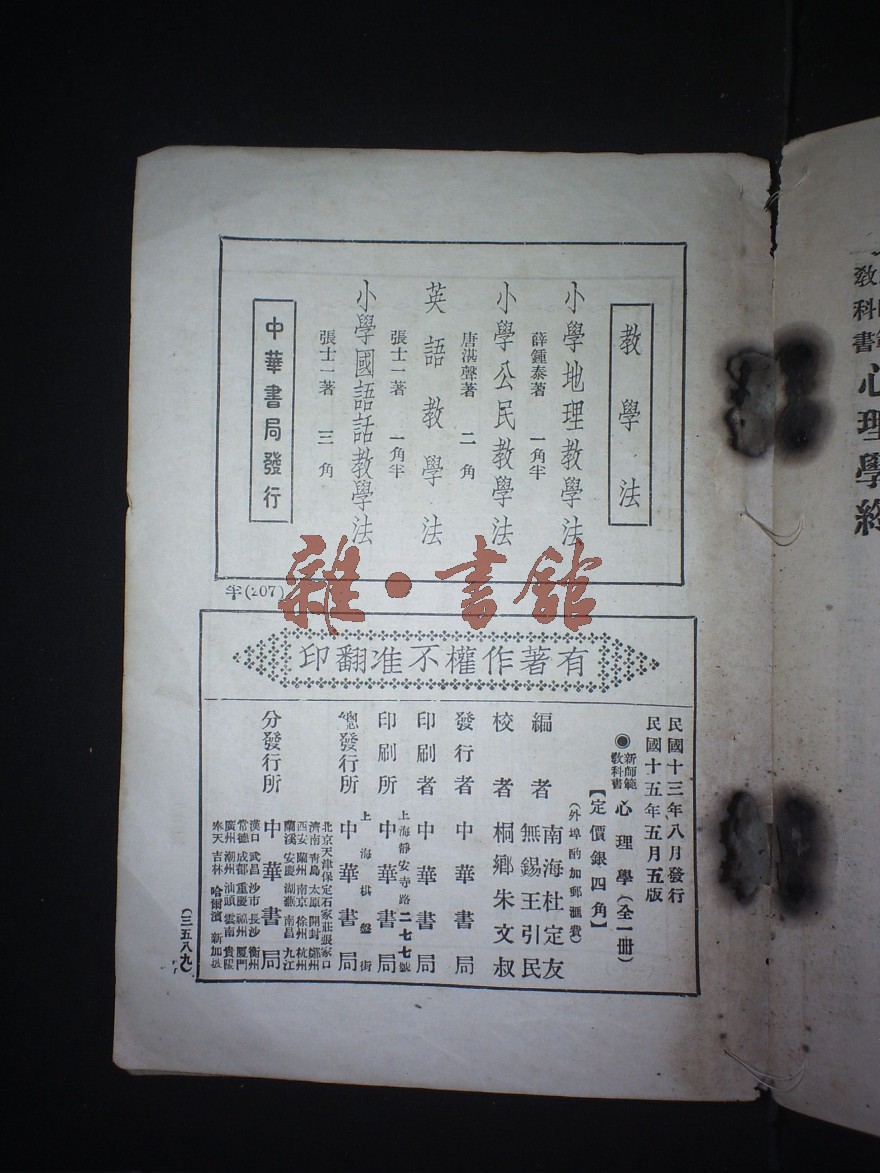 教科書
心理學終
教學法
小學地理教學法
薛鍾泰著 一角半
小學公民教學法
唐湛聲著 二角
英語教學法
張士一著 一角半
小學國語話教學法
張士一著 三角
中華書局發行
半(207)
雜·書館
有著作權不准翻印
民國十三年八月發行
民國十五年五月五版
新師範教科書 心理學(全一冊)
【定價銀四角】
(外埠酌加郵滙費)
編者 南海杜定友
無錫王引民
校者 桐鄉朱文叔
發行者 中華書局
印刷者 中華書局
上海靜安寺路二七七號
印刷所 中華書局
上海棋盤街
總發行所 中華書局
分發行所 中華書局
北京 天津 保定 石家莊 張家口
濟南 靑島 太原 開封 鄭州
西安 蘭州 南京 徐州 杭州
蘭溪 安慶 蕪湖 南昌 九江
漢口 武昌 沙市 長沙 衡州
常德 成都 重慶 福州 厦門
廣州 潮州 汕頭 雲南 貴陽
奉天 吉林 哈爾濱 新加坡
(三五八九)